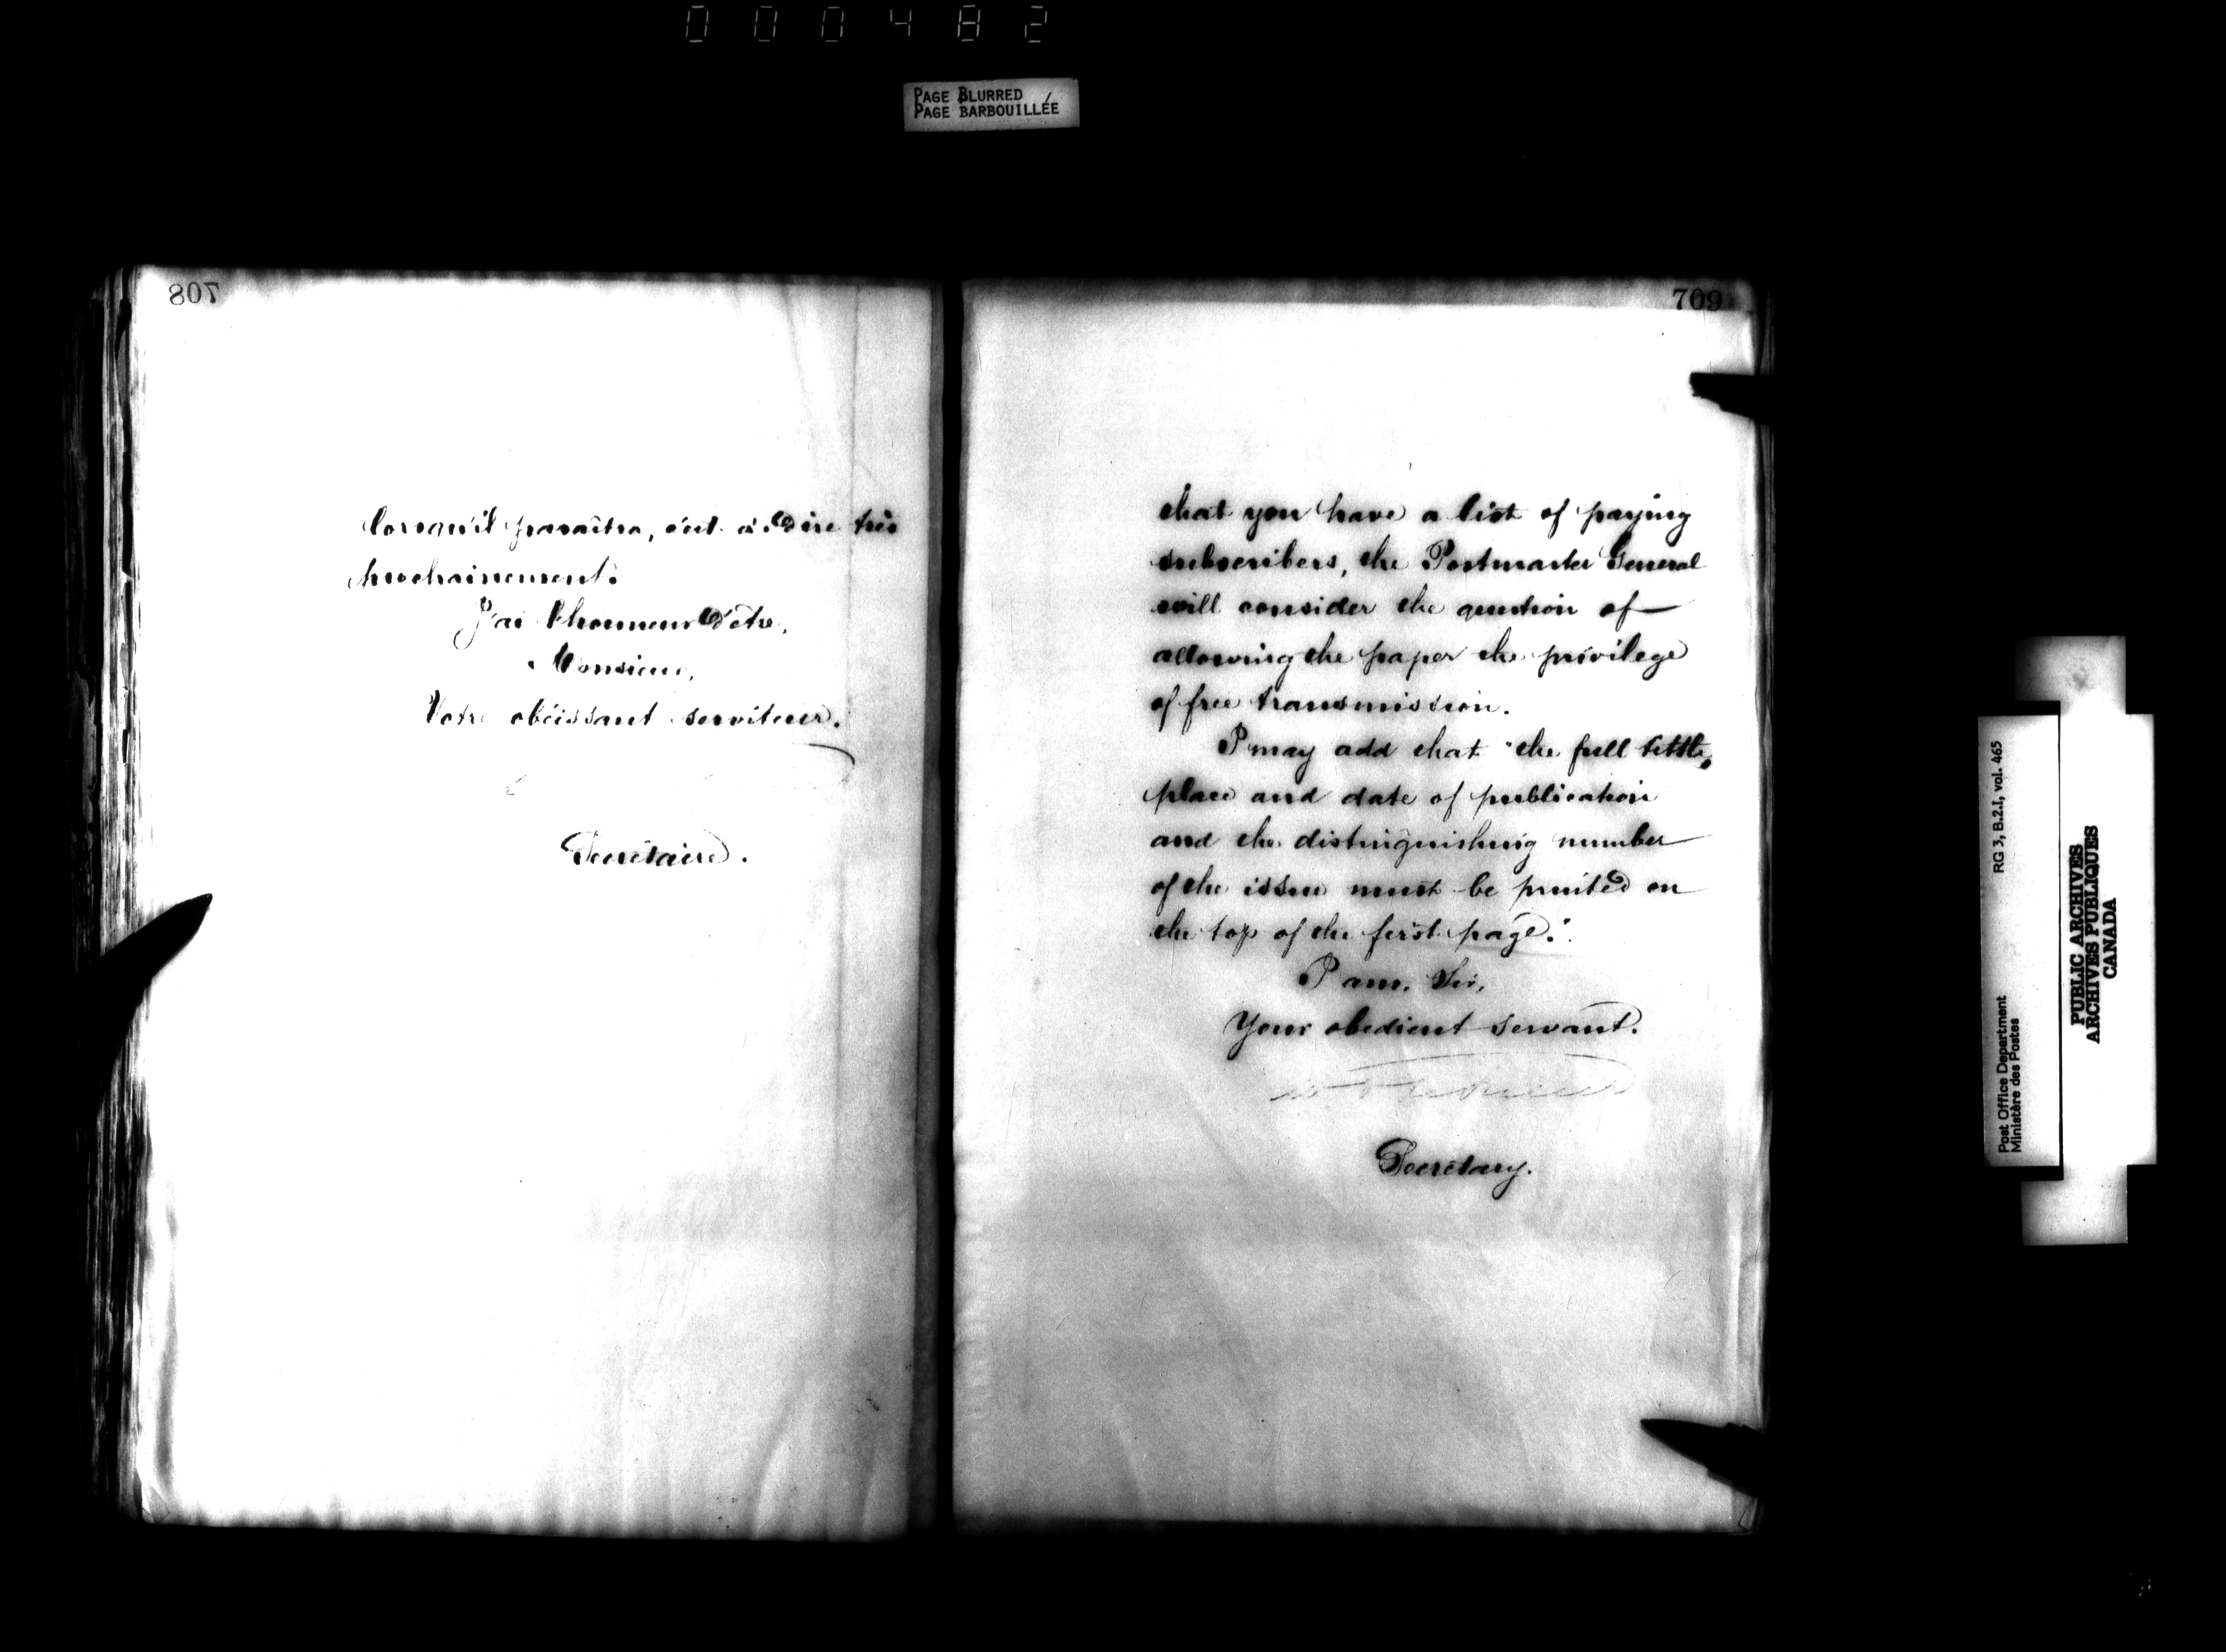 000482
PAGE BLURRED
PAGE BARBOUILLÉE
708
lorsqu'il paraîtra, c'est à dire très
prochainement.
J'ai l'honneur d'être,
Monsieur,
Votre obéissant serviteur.
Secrétaire.
709
that you have a list of paying
subscribers, the Postmaster General
will consider the question of
allowing the paper the privilege
of free transmission.
I may add that "the full tittle,
place and date of publication
and the distinguishing number
of the issue must be printed on
the top of the first page."
I am, Sir,
Your obedient servant.
Secretary.
Post Office Department
Ministère des Postes
RG 3, B.2.I, vol. 465
PUBLIC ARCHIVES
ARCHIVES PUBLIQUES
CANADA